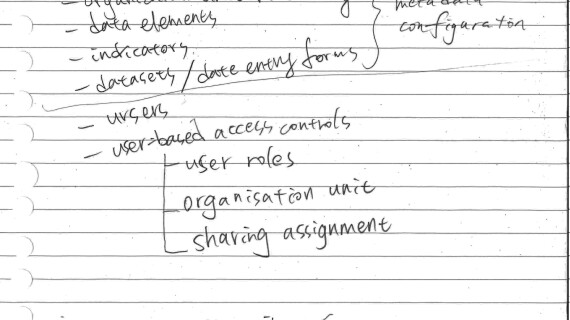 metadata
- data elements
configuraton
- indicators
- datasets / date entry forms
- ursers
- user-based access controls
- user roles
- organisation unit
- sharing assignment